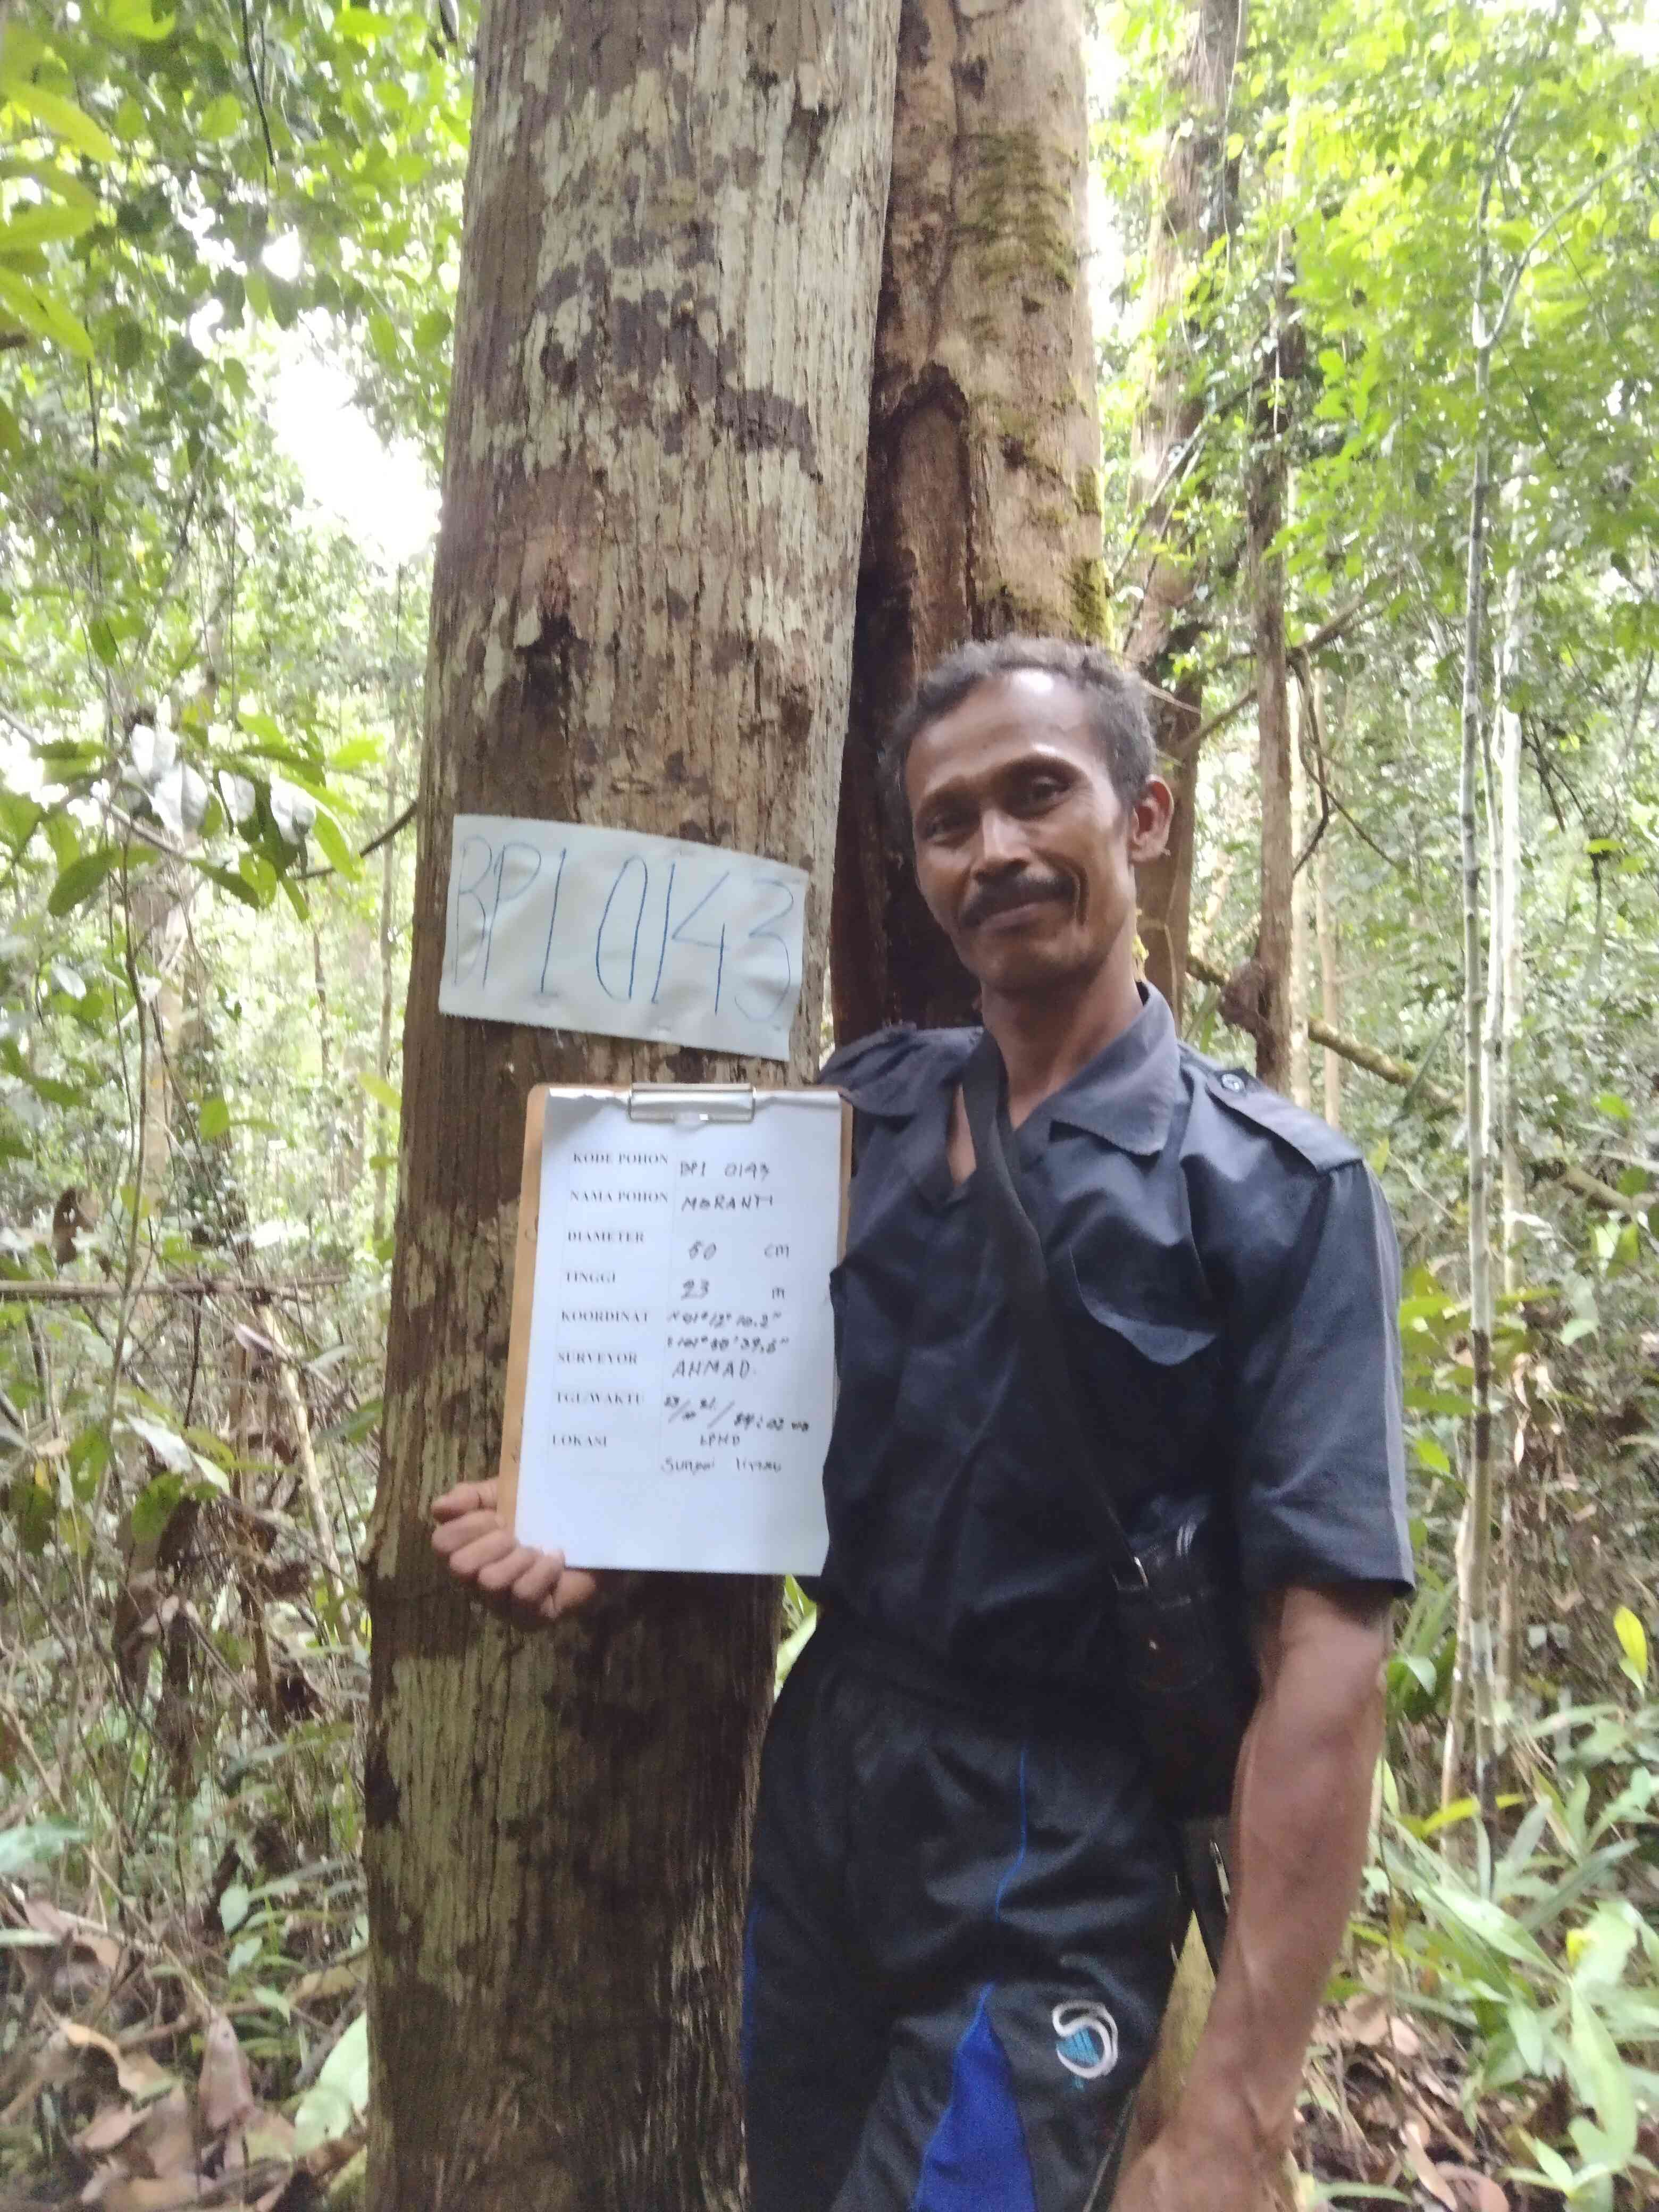 BPI 0143
KODE POHON BPI 0143
NAMA POHON MERANTI
DIAMETER 50 cm
TINGGI 23 m
KOORDINAT N 01° 12' 10,2"
39,6"
SURVEYOR AHMAD
TGL/WAKTU
LOKASI LPHD
Sungai